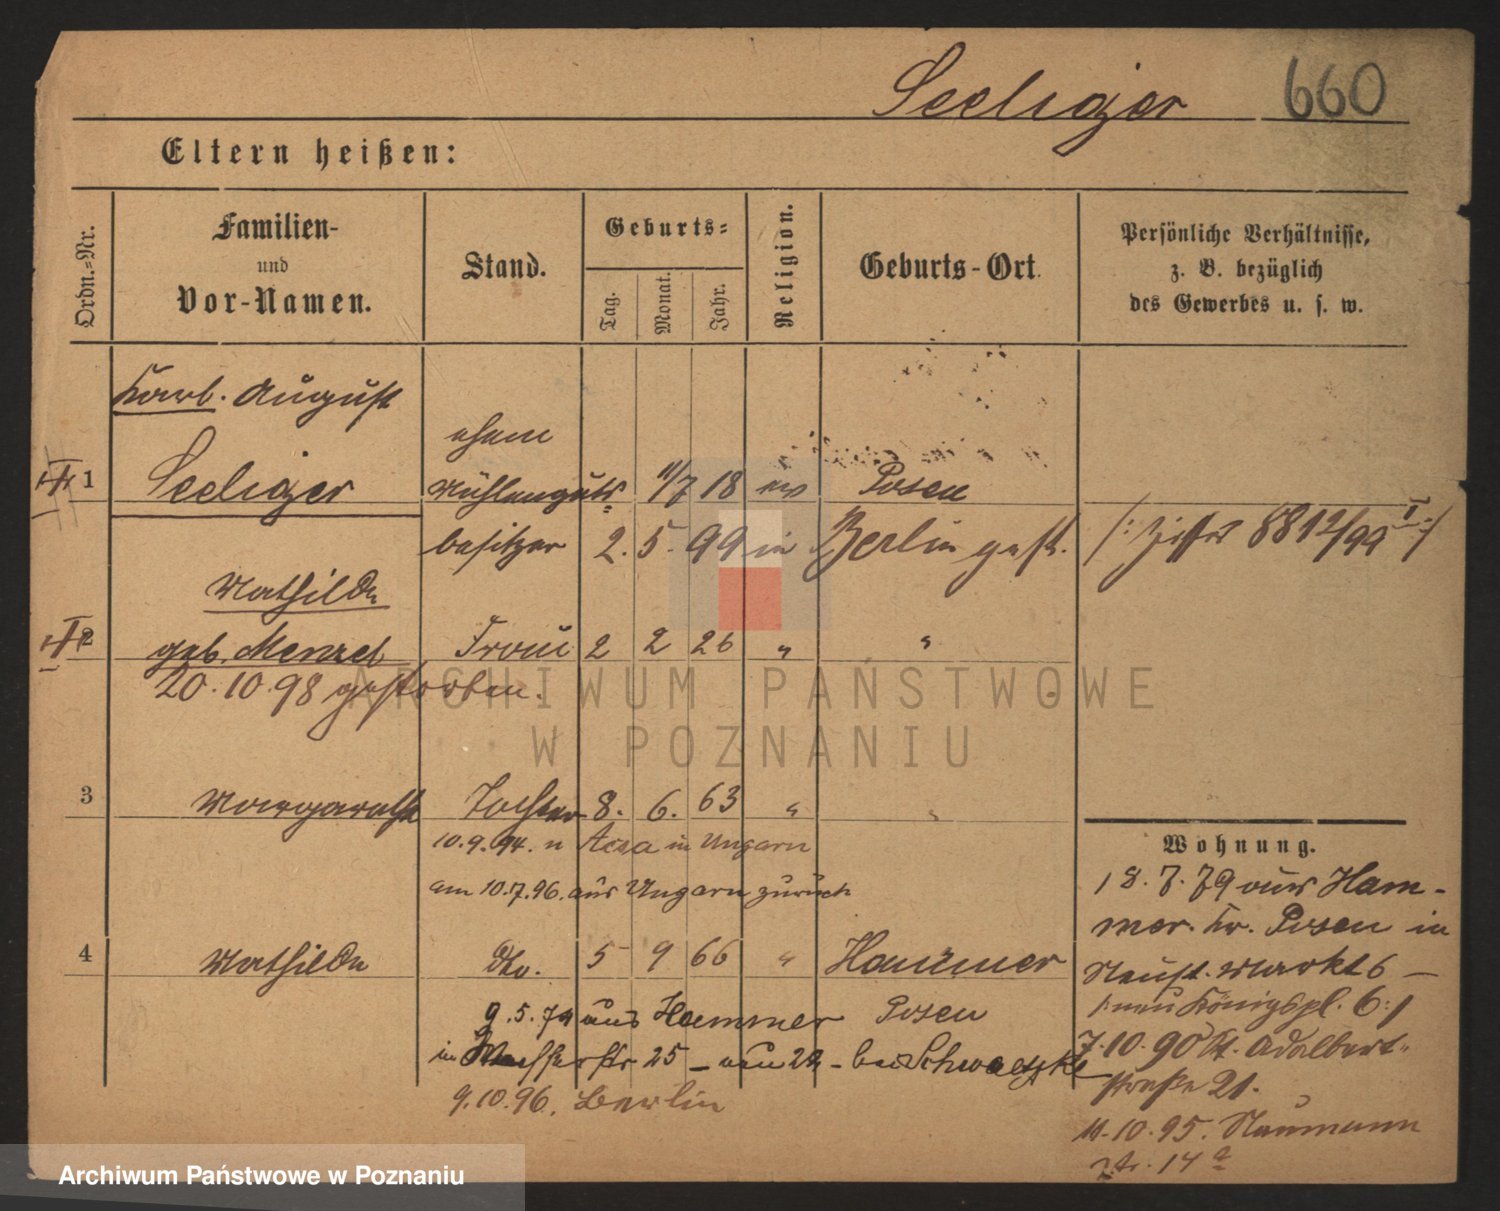 Seeliger 660
Eltern heißen:
Ordn.-Nr.
Familien-
und
Vor-Namen.
Stand.
Geburts-
Tag.
Monat.
Jahr.
Religion.
Geburts-Ort.
Persönliche Verhältnisse,
z. B. bezüglich
des Gewerbes u. s. w.
Karl. August
ehem
1 Seeliger Mühlenguts- 11/7 18 ev Posen
besitzer 2. 5. 99 in Berlin gest. /: Ziffer 8812/99 I :/
Mathilde
2 geb. Menzel Frau 2 2 26 " "
20.10.98 gestorben.
3 Margarethe Tochter 8. 6. 63 " "
10.9.94. n Acsa in Ungarn
am 10.7.96. aus Ungarn zurück
4 Mathilde dto. 5 9 66 " Hammer
9.5.74 aus Hammer Posen
in Wasserstr 25 - nun 22 - bei Schwaetzke
9.10.96. Berlin
Wohnung.
18.7.79 aus Ham-
mer. Kr. Posen in
Neust. Markt 6 —
/: neu Königspl. 6 :/
7.10.90 St. Adalbert-
straße 21.
11.10.95. Naumann
str. 14 a
ARCHIWUM PAŃSTWOWE
W POZNANIU
Archiwum Państwowe w Poznaniu